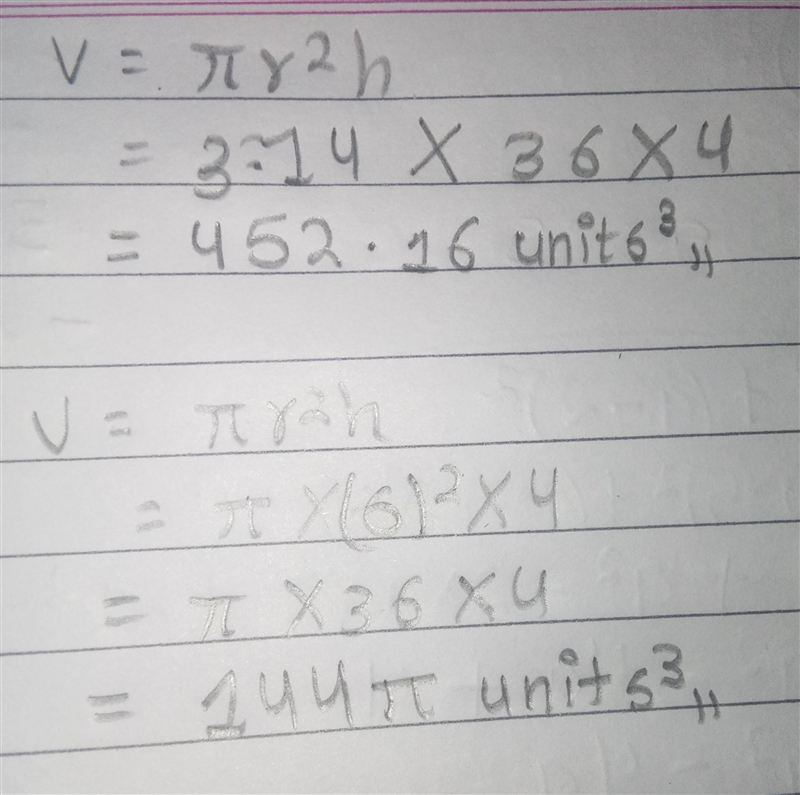 V = πr²h
= 3.14 × 36 × 4
= 452.16 units³,,
V = πr²h
= π × (6)² × 4
= π × 36 × 4
= 144π units³,,